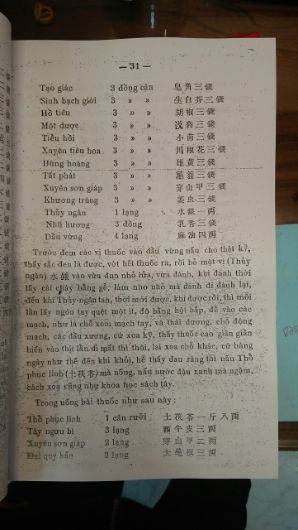 — 31 —
Tạo giác 3 đồng cân 皂角三錢
Sinh bạch giới 3 » » 生白芥三錢
Hồ tiêu 3 » » 胡椒三錢
Một dược 3 » » 沒藥三錢
Tiểu hồi 3 » » 小茴三錢
Xuyên tiêu hoa 3 » » 川椒花三錢
Hùng hoàng 3 » » 雄黃三錢
Tất phát 3 » » 三錢
Xuyên sơn giáp 3 » » 穿山甲三錢
Khương trùng 3 » » 虫三錢
Thủy ngân 1 lạng 水銀一兩
Nhũ hương 3 đồng 乳香三錢
Dầu vừng 4 lạng 麻油四兩
Trước đem các vị thuốc vào dầu vừng nấu cho thật kỹ,
thấy sắc đen là được, vớt hết thuốc ra, rồi bỏ một vị (Thủy
ngân) 水銀 vào vừa đun nhỏ lửa, vừa đánh, khi đánh thời
lấy cái chày bằng gỗ, làm nho nhỏ mà đánh đi đánh lại,
đến khi Thủy-ngân tan, thời mới được, khi được rồi, thì mỗi
lần lấy ngón tay quệt một ít, độ bằng hột bắp, để vào các
mạch, như là chỗ xem mạch tay, và thái dương, chỗ động
mạch, các đầu xương, cứ xoa kỹ, thấy thuốc cao giần giần
biến vào thịt lần đi mất thì thôi, lại xoa chỗ khác, cứ hàng
ngày như thế đến khi khỏi, hễ thấy đau răng thì nấu Thổ
phục linh (土茯苓) mà uống, nấu nước đậu xanh mà ngậm,
cách xoa cũng như khoa học sách tây.
Trong uống bài thuốc như sau này :
Thổ phục linh 1 cân rưỡi 土茯苓一斤八兩
Tây ngưu bì 3 lạng 西牛皮三兩
Xuyên sơn giáp 2 lạng 穿山甲二兩
Đại quy bản 3 lạng 大龜板三兩